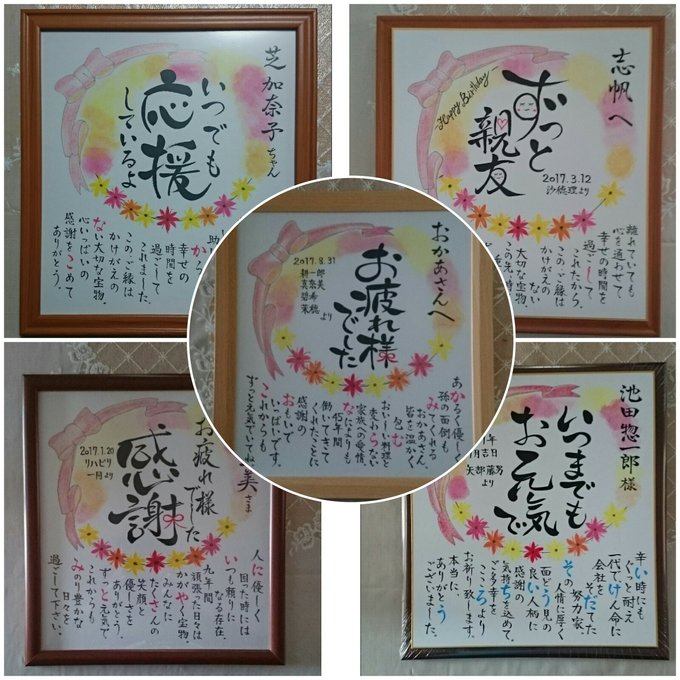 芝加奈子ちゃん
いつでも
応援
しているよ
幸せの
時間を
過ごして
これました。
このご縁は
かけがえの
ない大切な宝物。
心いっぱいの
感謝をこめて
ありがとう。
志帆へ
Happy Birthday
ずっと
親友
2017.3.12
沙穂理より
離れていても
心を通わせて
幸せの時間を
過ごして
これたから。
このご縁は
かけがえのない
大切な宝物。
この先、時
おかあさんへ
2017.8.31
耕一郎
真奈美
碧希
茉穂
より
お疲れ様
でした
あかるく優し
孫の面倒も
みてくれる
おかあさん。
皆を温かく
包む
おいしい料理と
変わらない
家族への愛情。
なによりも
45年間
働いてきて
くれたことに
感謝の
おもいで
いっぱいです。
これからも
ずっと元気でいて
美さま
お疲れ様
でした
感謝
2017.1.20
リハビリ
一同より
人に優しく
困った時には
いつも頼りに
なる存在。
九年間
頑張った日々は
かがやく宝物。
みんなに
たくさんの
笑顔と
優しさを
ありがとう。
ずっと元気で
これからも
みのり豊かな
日々を
過ごして下さい。
池田惣一郎様
いつまでも
お元気で
年
月吉日
矢部藤男
より
辛い時にも
ぐっと耐え
一代でけん命に
会社を
そだてた
努力家。
その人情に厚く
面どう見の
良い人柄に
感謝の
気持ちを込めて。
ご多幸を
こころより
お祈り致します。
本当に
ありがとう
ございました。